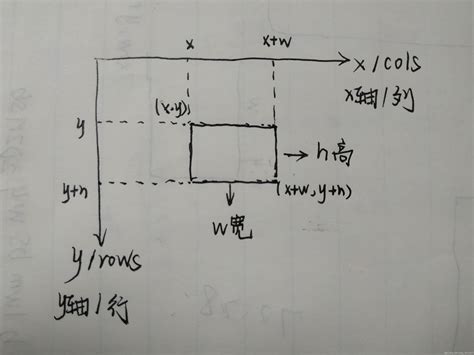 x x+w
x/cols
x轴/列
(x,y)
y
h高
y+h
(x+w,y+h)
w宽
y/rows
y轴/行